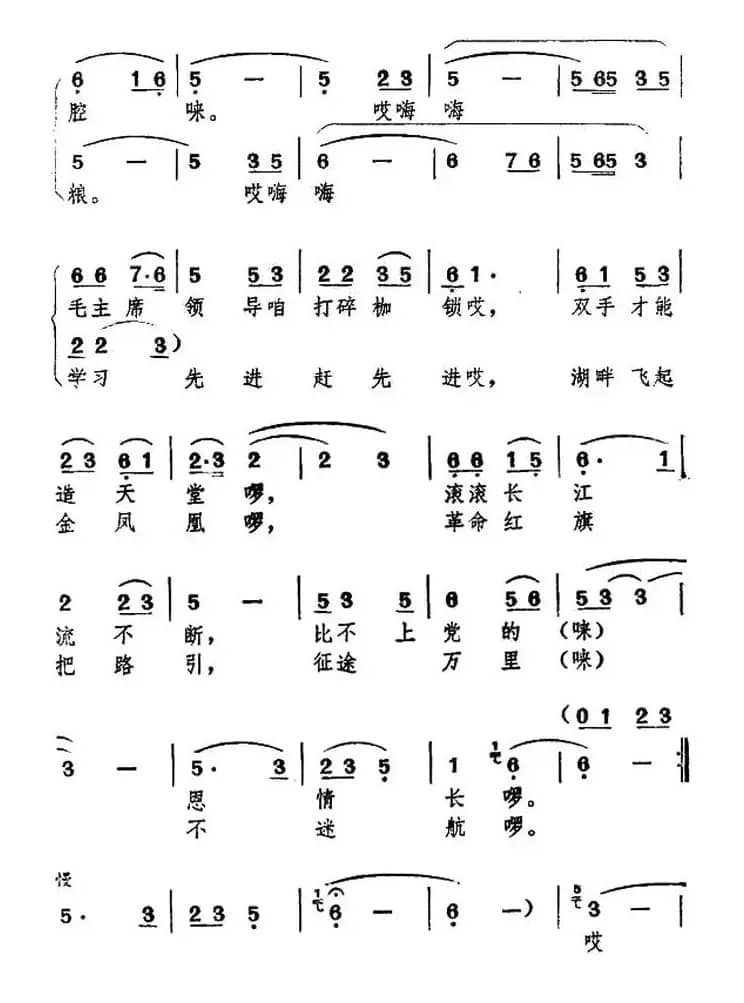 6 1 6 | 5 — | 5 2 3 | 5 — | 5 65 3 5
腔 唻。 哎嗨 嗨
5 — | 5 3 5 | 6 — | 6 7 6 | 5 65 3
粮。 哎嗨 嗨
6 6 7·6 | 5 5 3 | 2 2 3 5 | 6 1· | 6 1 5 3
毛主席 领 导咱 打碎枷 锁哎， 双手才能
2 2 3）
学习 先 进 赶 先 进哎， 湖畔飞起
2 3 6 1 | 2·3 2 | 2 3 | 6 6 1 5 | 6· 1
造 天 堂 啰， 滚滚长 江
金 凤 凰 啰， 革命红 旗
2 2 3 | 5 — | 5 3 5 | 6 5 6 | 5 3 3
流 不 断， 比不 上 党 的（唻）
把 路 引， 征途 万 里（唻）
（0 1 2 3
3 — | 5· 3 | 2 3 5 | 1 6 | 6 — :|
恩 情 长 啰。
不 迷 航 啰。
慢
5· 3 | 2 3 5 | 6 — | 6 —） | 3 —
哎